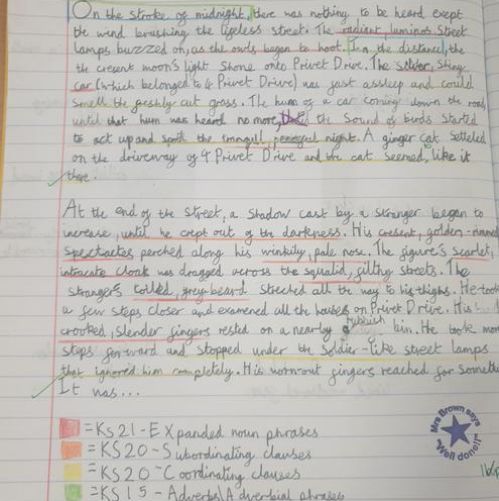 On the stroke of midnight, there was nothing to be heard exept
the wind brushing the lifeless street. The radiant, luminos street
lamps buzzed on, as the owls began to hoot. In the distance, the
the cresent moon's light shone onto Privet Drive. The silver, shiny
car (which belonged to 4 Privet Drive) was fast assleep and could
smell the freshly-cut grass. The hum of a car coming down the road,
until that hum was heard no more, the sound of birds started
to act up and spoil the tranquil, peaceful night. A ginger cat setteled
on the driveway of 4 Privet Drive and the cat seemed, like it
there.
At the end of the street, a shadow cast by a stranger began to
increase, until he crept out of the darkness. His cresent, golden-rimmed
spectactes perched along his winkily, pale nose. The figure's scarlet,
intracate cloak was dragged across the squalid, filthy streets. The
stranger's coiled, grey beard streched all the way to his thighs. He took
a few steps closer and examened all the houses on Privet Drive. His
crooked, slender fingers rested on a nearby rubbish bin. He took more
steps forward and stopped under the soldier-like street lamps
that ignored him completely. His wornout fingers reached for someth
It was...
=KS21-Expanded noun phrases
=KS20-Subordinating clauses
=KS20-Coordinating clauses
=KS15-Adverbs\Adverbial phrases
Mrs Brown says
"Well done!"